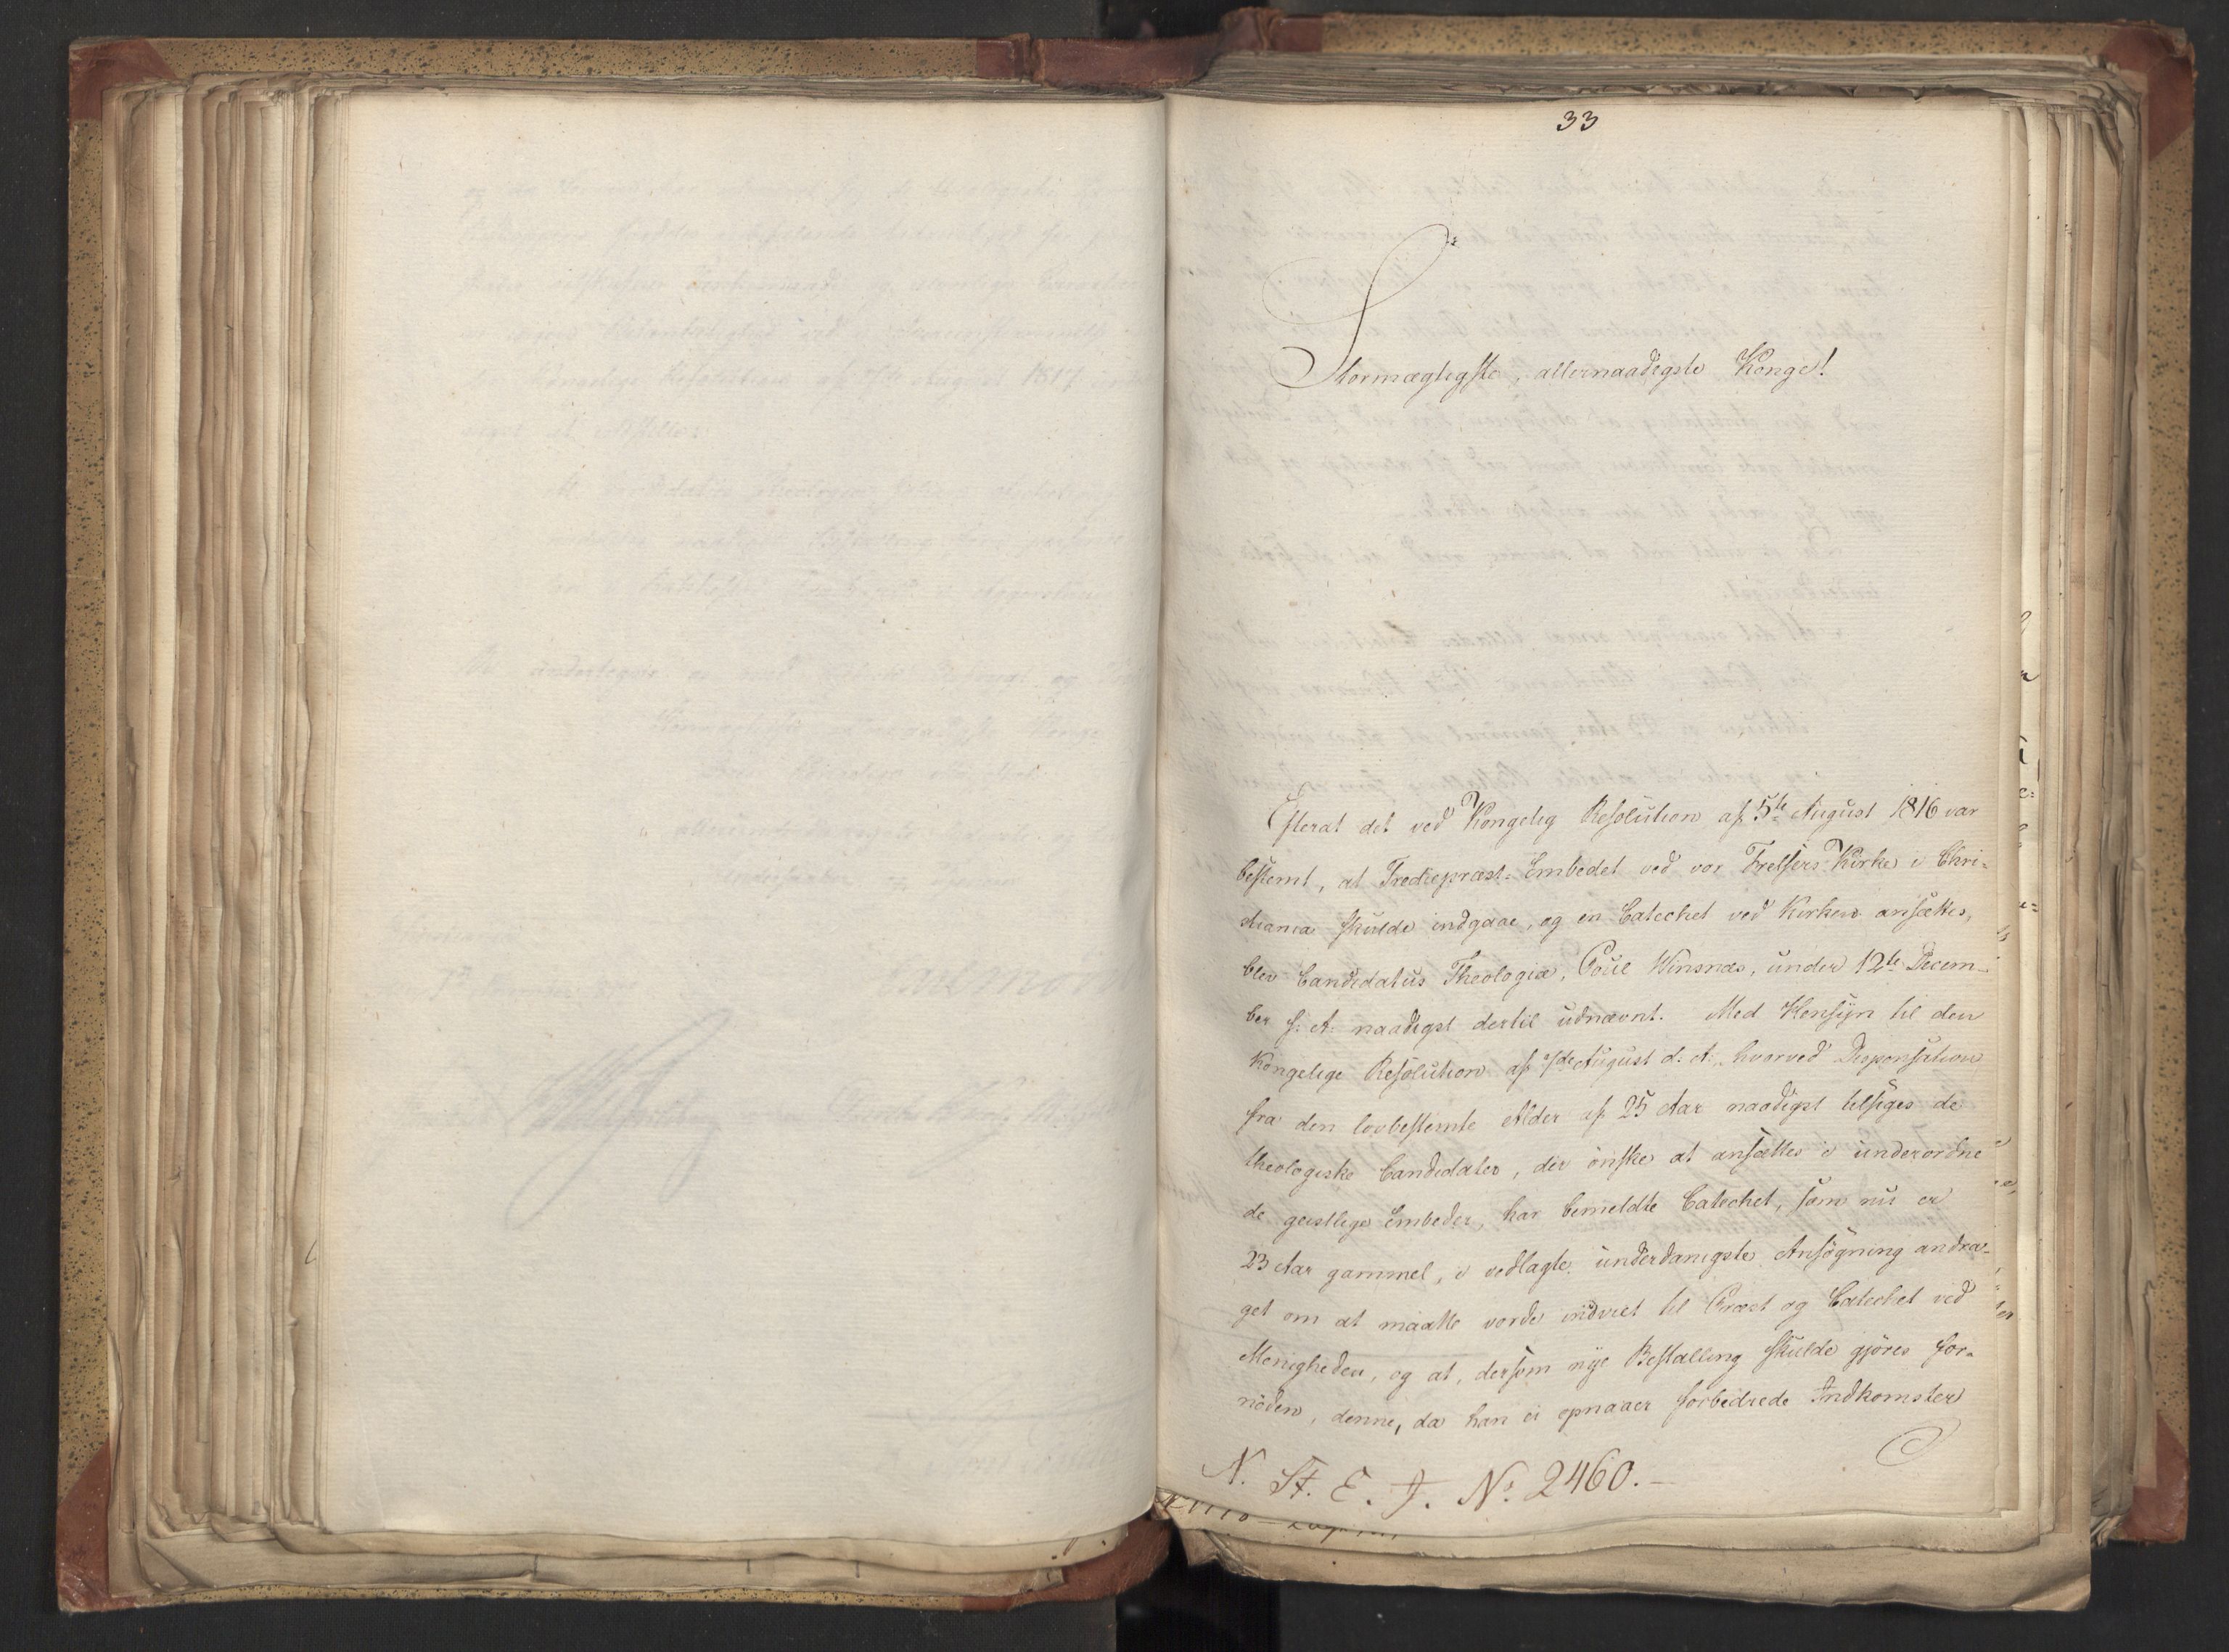 33
Stormægtigste, allernaadigste Konge!
Efterat det ved Kongelig Resolution af 5te August 1816 var
bestemt, at Trediepræst-Embedet ved vor Frelsers Kirke i Chri-
stiania skulde indgaae, og en Catechet ved Kirken ansættes,
blev Candidatus Theologiæ, Poul Winsnes, under 12te Decem-
ber s: A: naadigst dertil udnævnt. Med Hensyn til den
Kongelige Resolution af August d: A:, hvorved Dispensation
fra den lovbestemte Alder af 25 Aar naadigst tilsiges de
theologiske Candidater, der önske at ansættes i underordne
de geistlige Embeder, har bemeldte Catechet, som nu er
23 Aar gammel, i vedlagte underdanigste Ansögning andra-
get om at maatte vorde indviet til Præst og Catechet ved
Menigheden, og at, dersom nye Bestalling skulde gjöres for-
nöden, denne, da han ei opnaaer forbedrede Indkomster
N. St. E. J. No. 2460.-